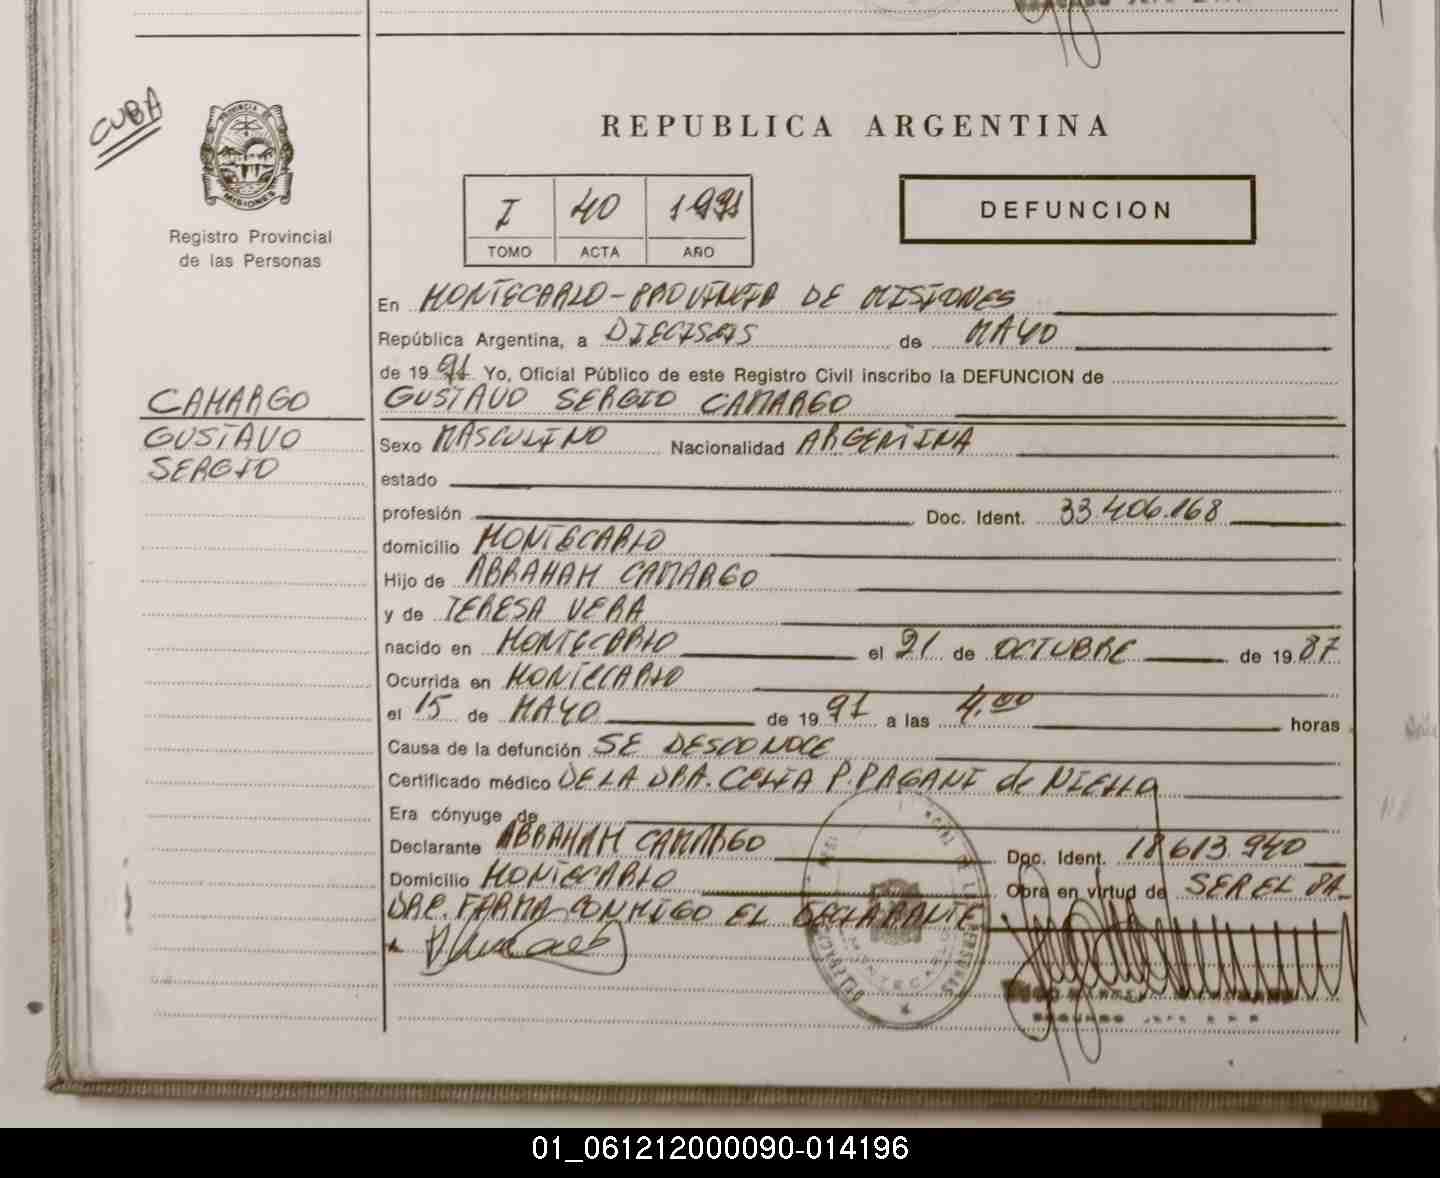 CUBA
PROVINCIA DE
MISIONES
Registro Provincial
de las Personas
REPUBLICA ARGENTINA
I 40 1991
TOMO ACTA AÑO
DEFUNCION
En MONTECARLO - PROVINCIA DE MISIONES
República Argentina, a DIECISEIS de MAYO
de 19 91 Yo, Oficial Público de este Registro Civil inscribo la DEFUNCION de
CAMARGO GUSTAVO SERGIO CAMARGO
GUSTAVO Sexo MASCULINO Nacionalidad ARGENTINA
SERGIO estado
profesión Doc. Ident. 33.406.168
domicilio MONTECARLO
Hijo de ABRAHAM CAMARGO
y de TERESA VERA
nacido en MONTECARLO el 21 de OCTUBRE de 19 87
Ocurrida en MONTECARLO
el 15 de MAYO de 19 91 a las 4.00 horas
Causa de la defunción SE DESCONOCE
Certificado médico DE LA DRA. CELIA P. PAGANI de NIELLA
Era cónyuge de
Declarante ABRAHAM CAMARGO Doc. Ident. 18613.940
Domicilio MONTECARLO Obra en virtud de SER EL PA-
DRE. FIRMA CONMIGO EL DECLARANTE
MONTECARLO
01_061212000090-014196